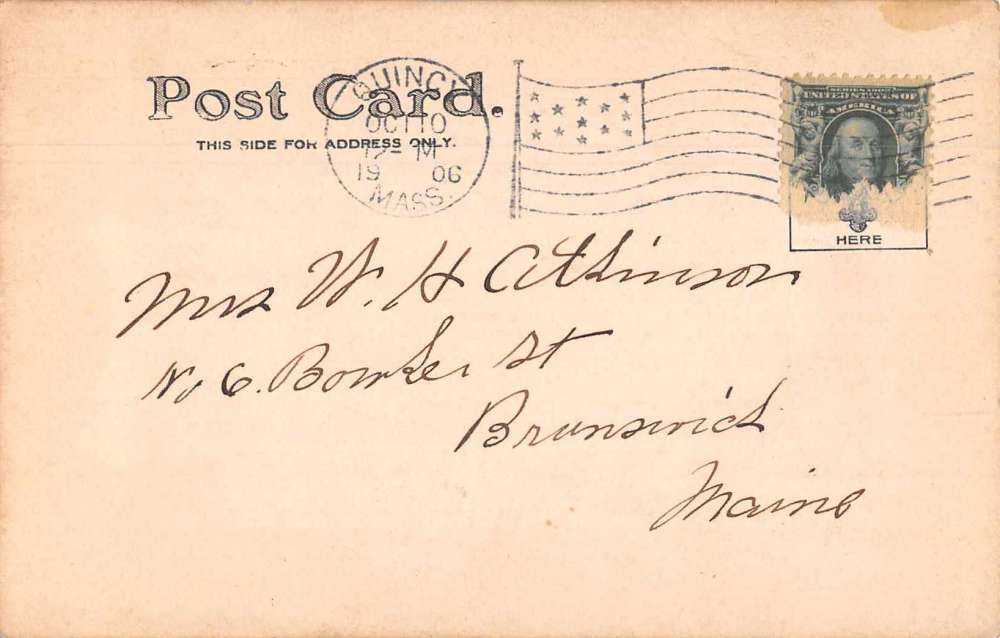 Post Card.
THIS SIDE FOR ADDRESS ONLY.
QUINCY
OCT 10
12- M
19 06
MASS.
SERIES 1902
UNITED STATES OF
AMERICA
HERE
Mrs W. H Atkinson
No 6. Bowker St
Brunswick
Maine